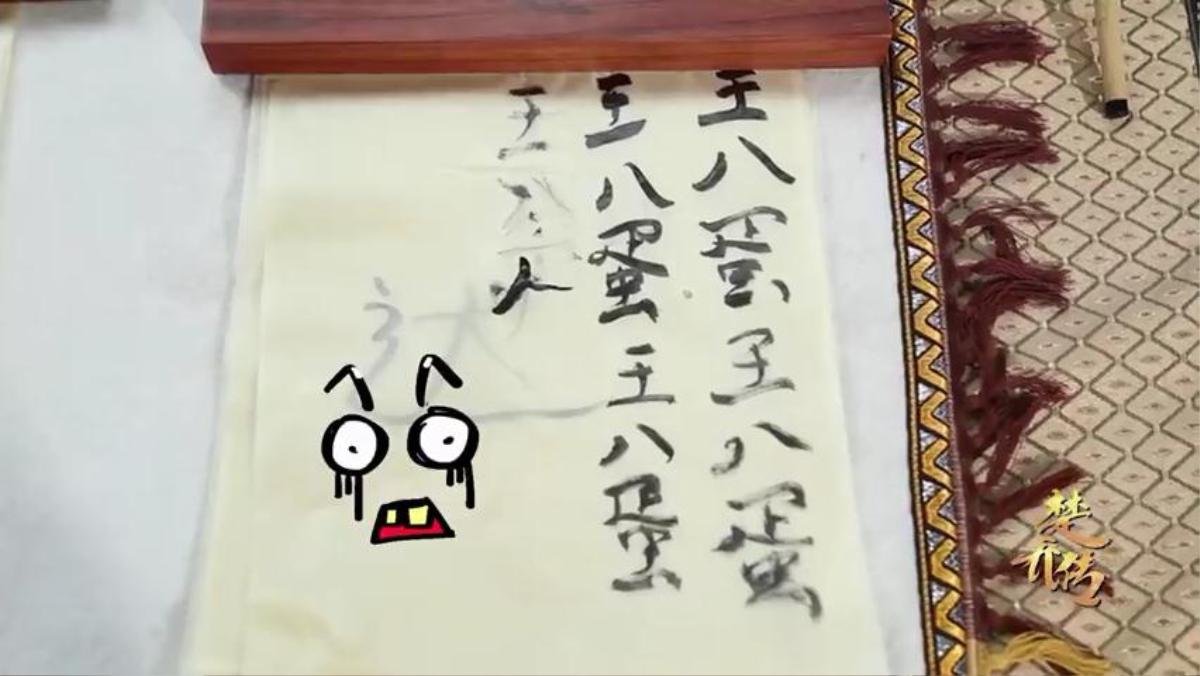 王八蛋王八蛋
王八蛋王八蛋
王
楚乔传